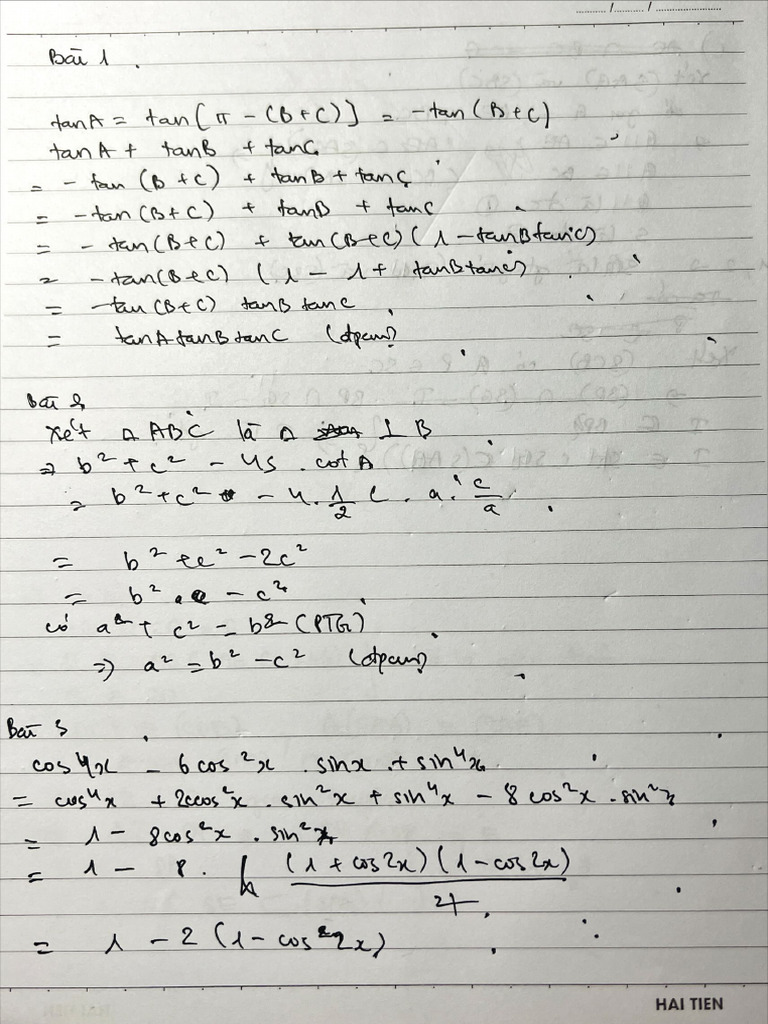 Bài 1.
tanA = tan[π - (B+C)] = -tan(B+C)
tanA + tanB + tanC
= -tan(B+C) + tanB + tanC
= -tan(B+C) + tanB + tanC
= -tan(B+C) + tan(B+C)(1-tanBtanC)
= -tan(B+C) (1-1+ tanBtanC)
= -tan(B+C) tanB tanC
= tanAtanBtanC (đpcm)
Bài 2
Xét △ABC là △ ⊥ B
⇒ b² + c² - 4S . cot A
= b² + c² - 4.½ c . a . c/a
= b² + c² - 2c²
= b² - c²
có a² + c² = b² (PTG)
⇒ a² = b² - c² (đpcm)
Bài 3
cos⁴x - 6cos²x . sinx + sin⁴x
= cos⁴x + 2cos²x . sin²x + sin⁴x - 8cos²x . sin²x
= 1 - 8cos²x . sin²x
= 1 - 8 . (1+cos2x)(1-cos2x)/4
= 1 - 2(1-cos²2x)
HAI TIEN